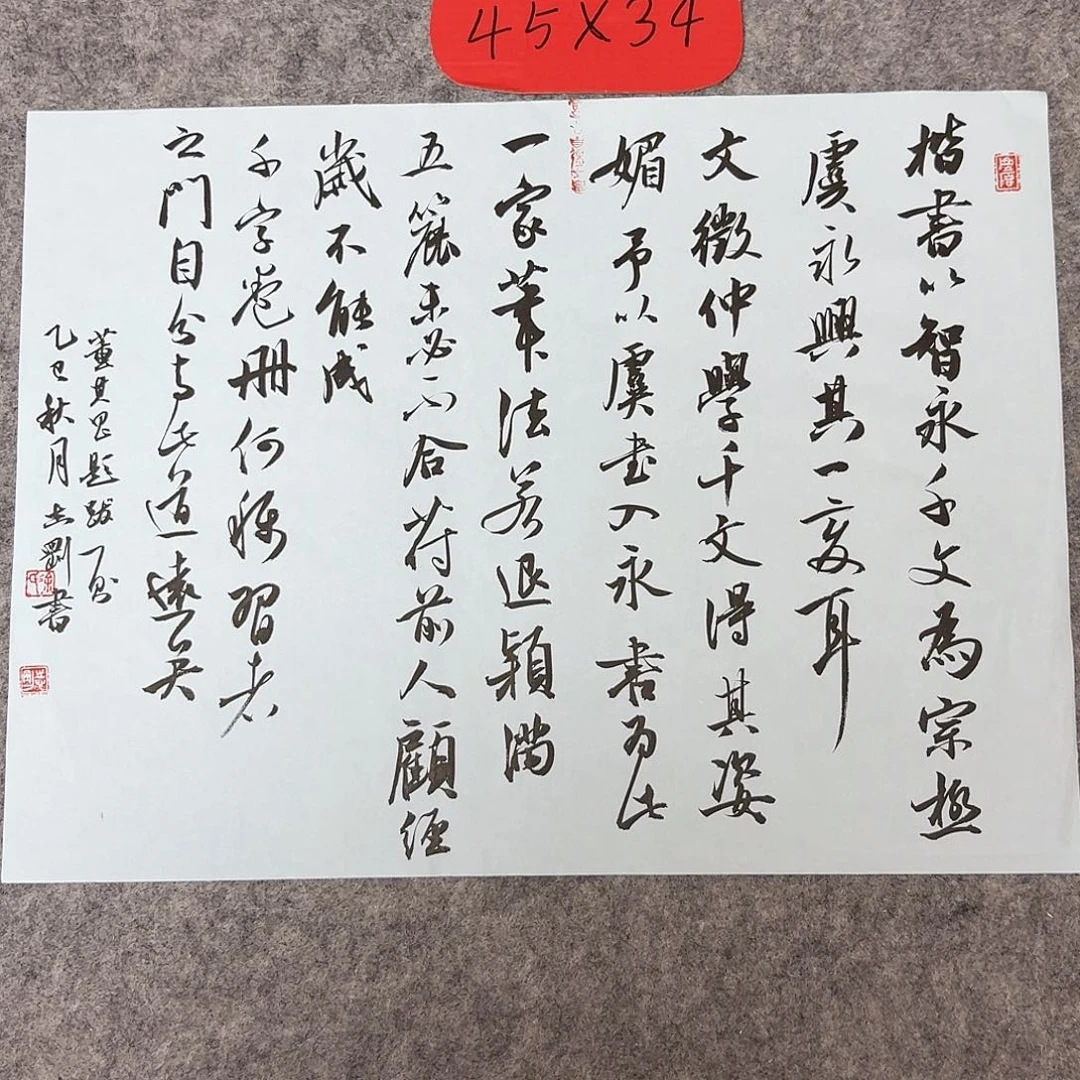 45X34
楷書以智永千文為宗極
虞永興其一變耳
文徵仲學千文得其姿
媚予以虞書入永書為此
一家筆法若退穎滿
五簏未必不合符前人顧經
歲不能成
千字卷冊何稱習者
之門自分與此道遠矣
董其昌題跋一則
乙巳秋月 劉書